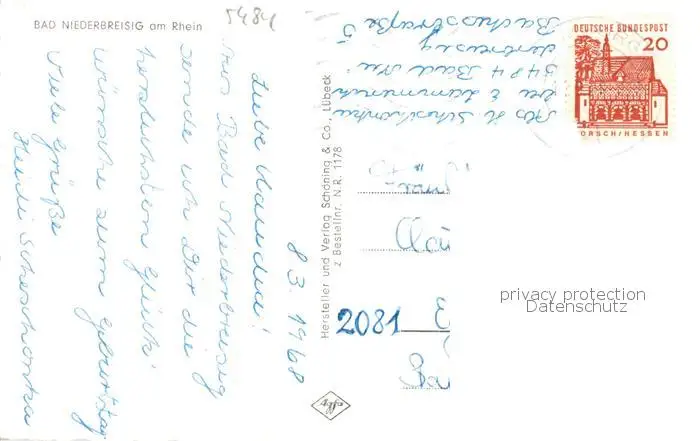 BAD NIEDERBREISIG am Rhein
5484
8.3.1968
Liebe Claudia!
Aus Bad Niederbreisig
sende ich Dir die
herzlichsten Glück-
wünsche zum Geburtstag
Viele Grüße
Heidi
Hersteller und Verlag Schöning & Co., Lübeck
z Bestellnr. N.R. 1178
Agfa
Abs H.
5484 Bad Nie-
derbreisig
Bachstraße 5
DEUTSCHE BUNDESPOST
20
LORSCH/HESSEN
2081
privacy protection
Datenschutz